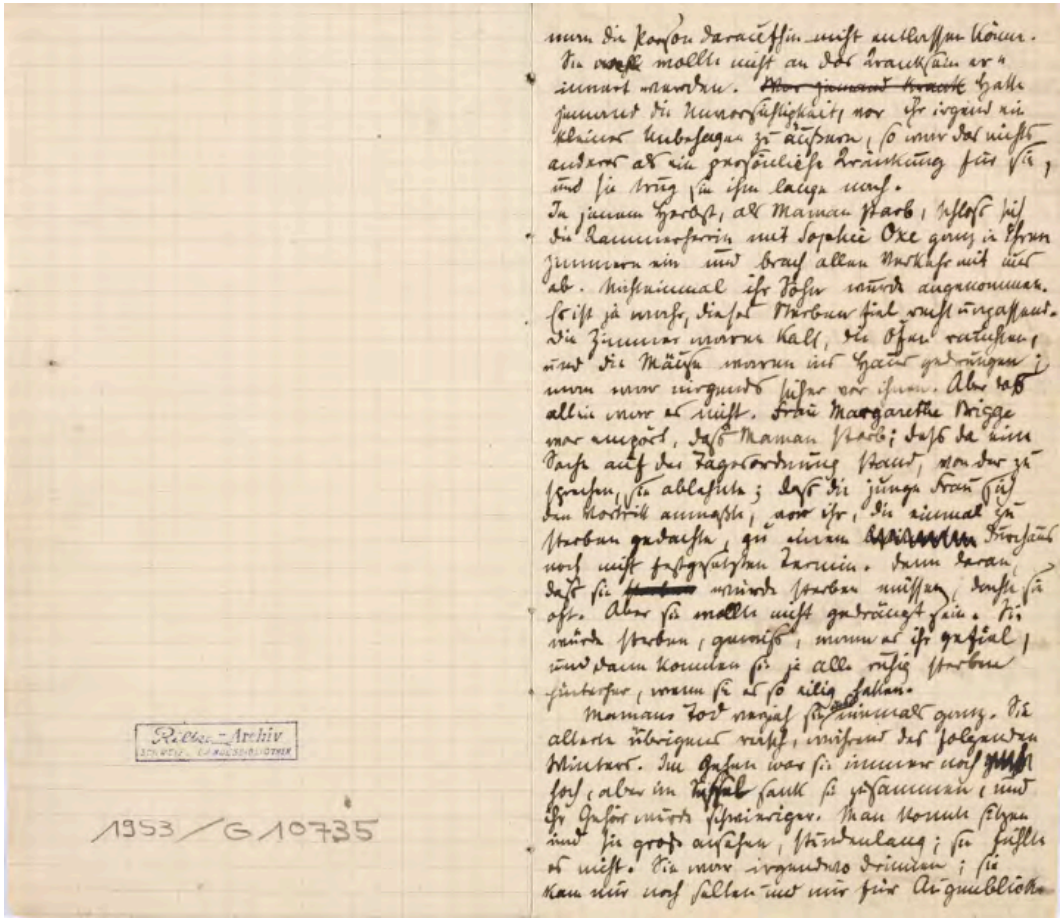 Rilke-Archiv
SCHWEIZ. LANDESBIBLIOTHEK
1953 / G 10735
man die Person daraufhin nicht entlassen könne.
Sie wollte nicht an das Kranksein er-
innert werden. War jemand krank Hatte
jemand die Unvorsichtigkeit, vor ihr irgend ein
kleines Unbehagen zu äußern, so war das nichts
anderes als eine persönliche Kränkung für sie,
und sie trug sie ihm lange nach.
In jenem Herbst, als Maman starb, schloß sich
die Kammerherrin mit Sophie Oxe ganz in ihren
Zimmern ein und brach allen Verkehr mit uns
ab. Nichteinmal ihr Sohn wurde angenommen.
Es ist ja wahr, dieses Sterben fiel recht unpassend.
Die Zimmer waren kalt, die Öfen rauchten,
und die Mäuse waren ins Haus gedrungen;
man war nirgends sicher vor ihnen. Aber das
allein war es nicht. Frau Margarethe Brigge
war empört, daß Maman starb; daß da eine
Sache auf der Tagesordnung stand, von der zu
sprechen, sie ablehnte; daß die junge Frau sich
den Vortritt anmaßte, vor ihr, die einmal zu
sterben gedachte, zu einem durchaus
noch nicht festgesetzten Termin. Denn daran,
daß sie sterben würde sterben müssen, dachte sie
oft. Aber sie wollte nicht gedrängt sein. Sie
würde sterben, gewiß, wann es ihr gefiel,
und dann konnten sie ja alle ruhig sterben
hinterher, wenn sie es so eilig hatten.
Mamans Tod verzieh sie uns niemals ganz. Sie
alterte übrigens rasch, während des folgenden
Winters. Im Gehen war sie immer noch
hoch, aber im Sessel sank sie zusammen, und
ihr Gehör wurde schwieriger. Man konnte sitzen
und sie groß ansehen, stundenlang; sie fühlte
es nicht. Sie war irgendwo drinnen; sie
kam nur noch selten und nur für Augenblicke